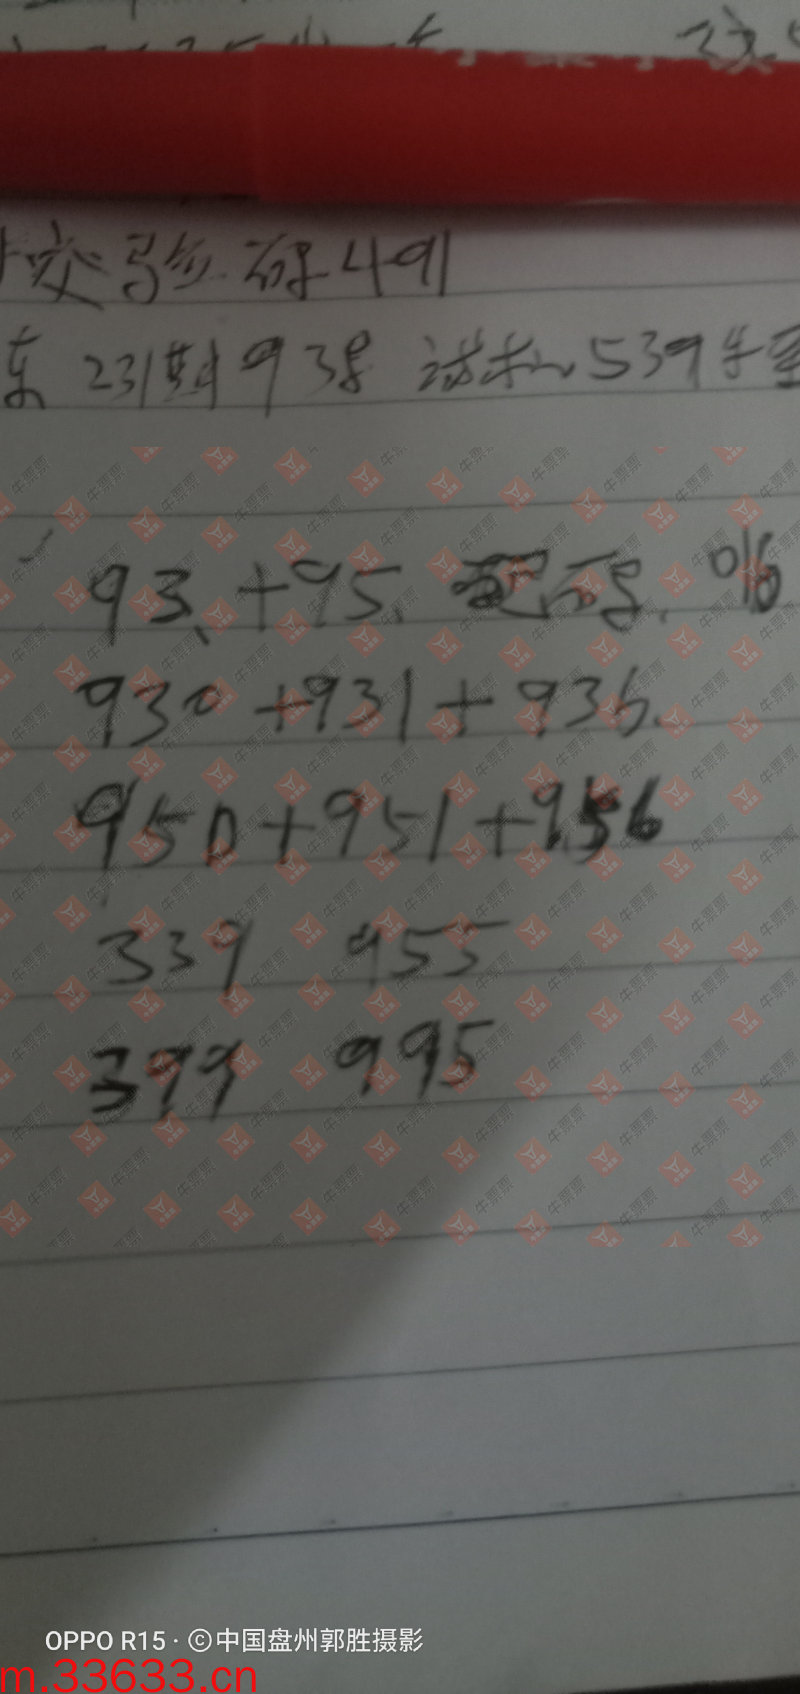 验码491
231期938 试机539
93、+95、配码、016
930+931+936.
950+951+956
339 955
399 995
牛票票
OPPO R15·©中国盘州郭胜摄影
m.33633.cn